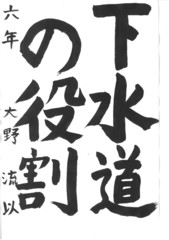 下水道
の役割
六年 大野流以